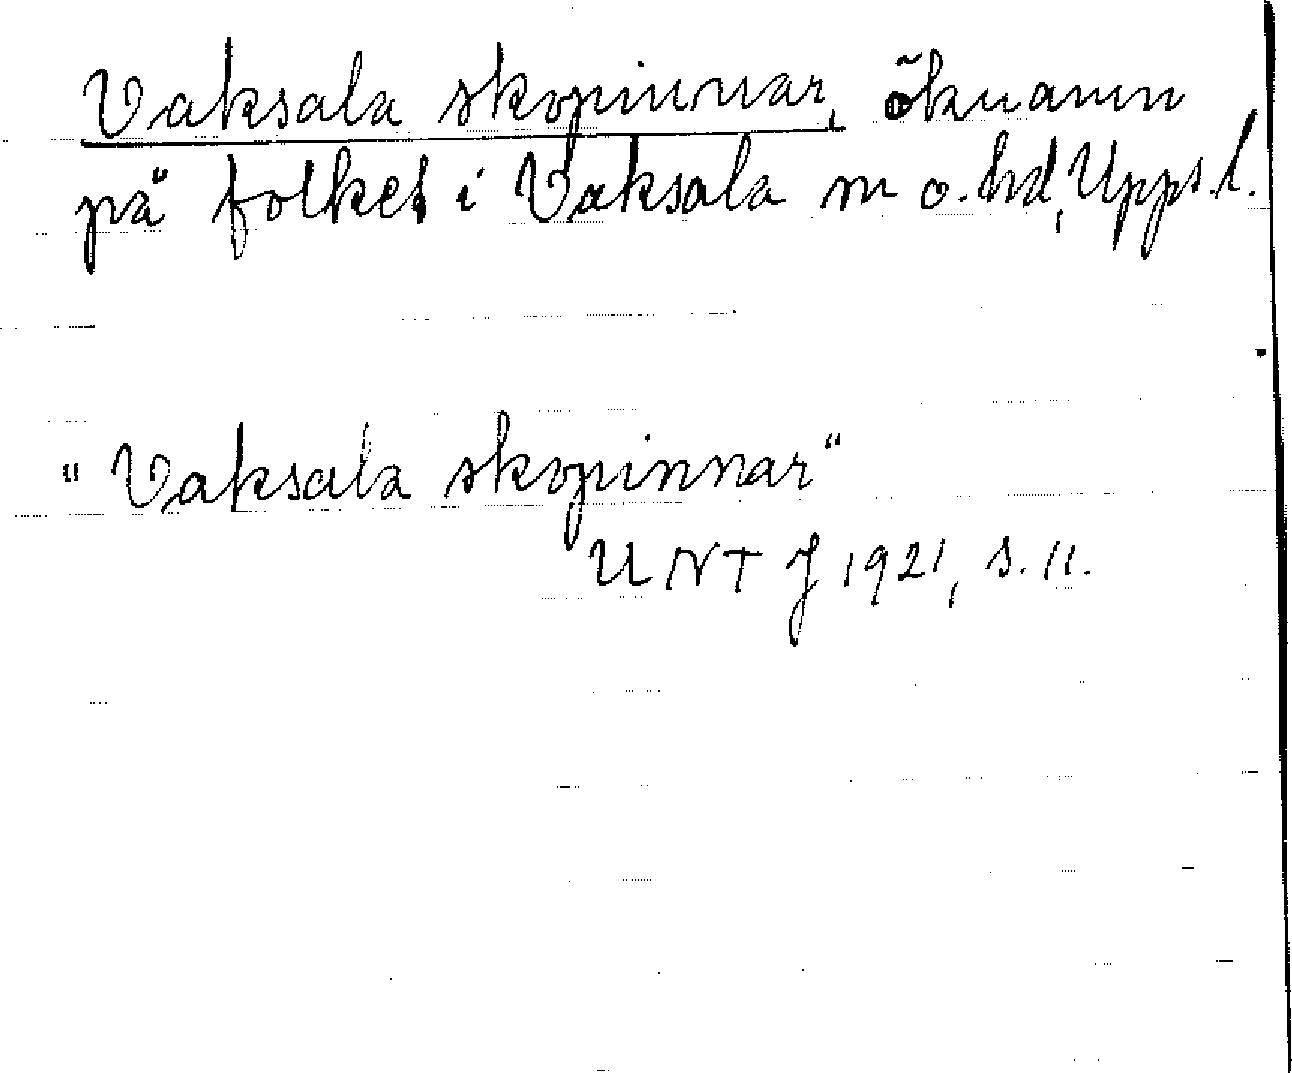 Vaksala skopinnar, öknamn
på folket i Vaksala sn o. hd, Upps. l.
"Vaksala skopinnar"
UNT J 1921, s. 11.